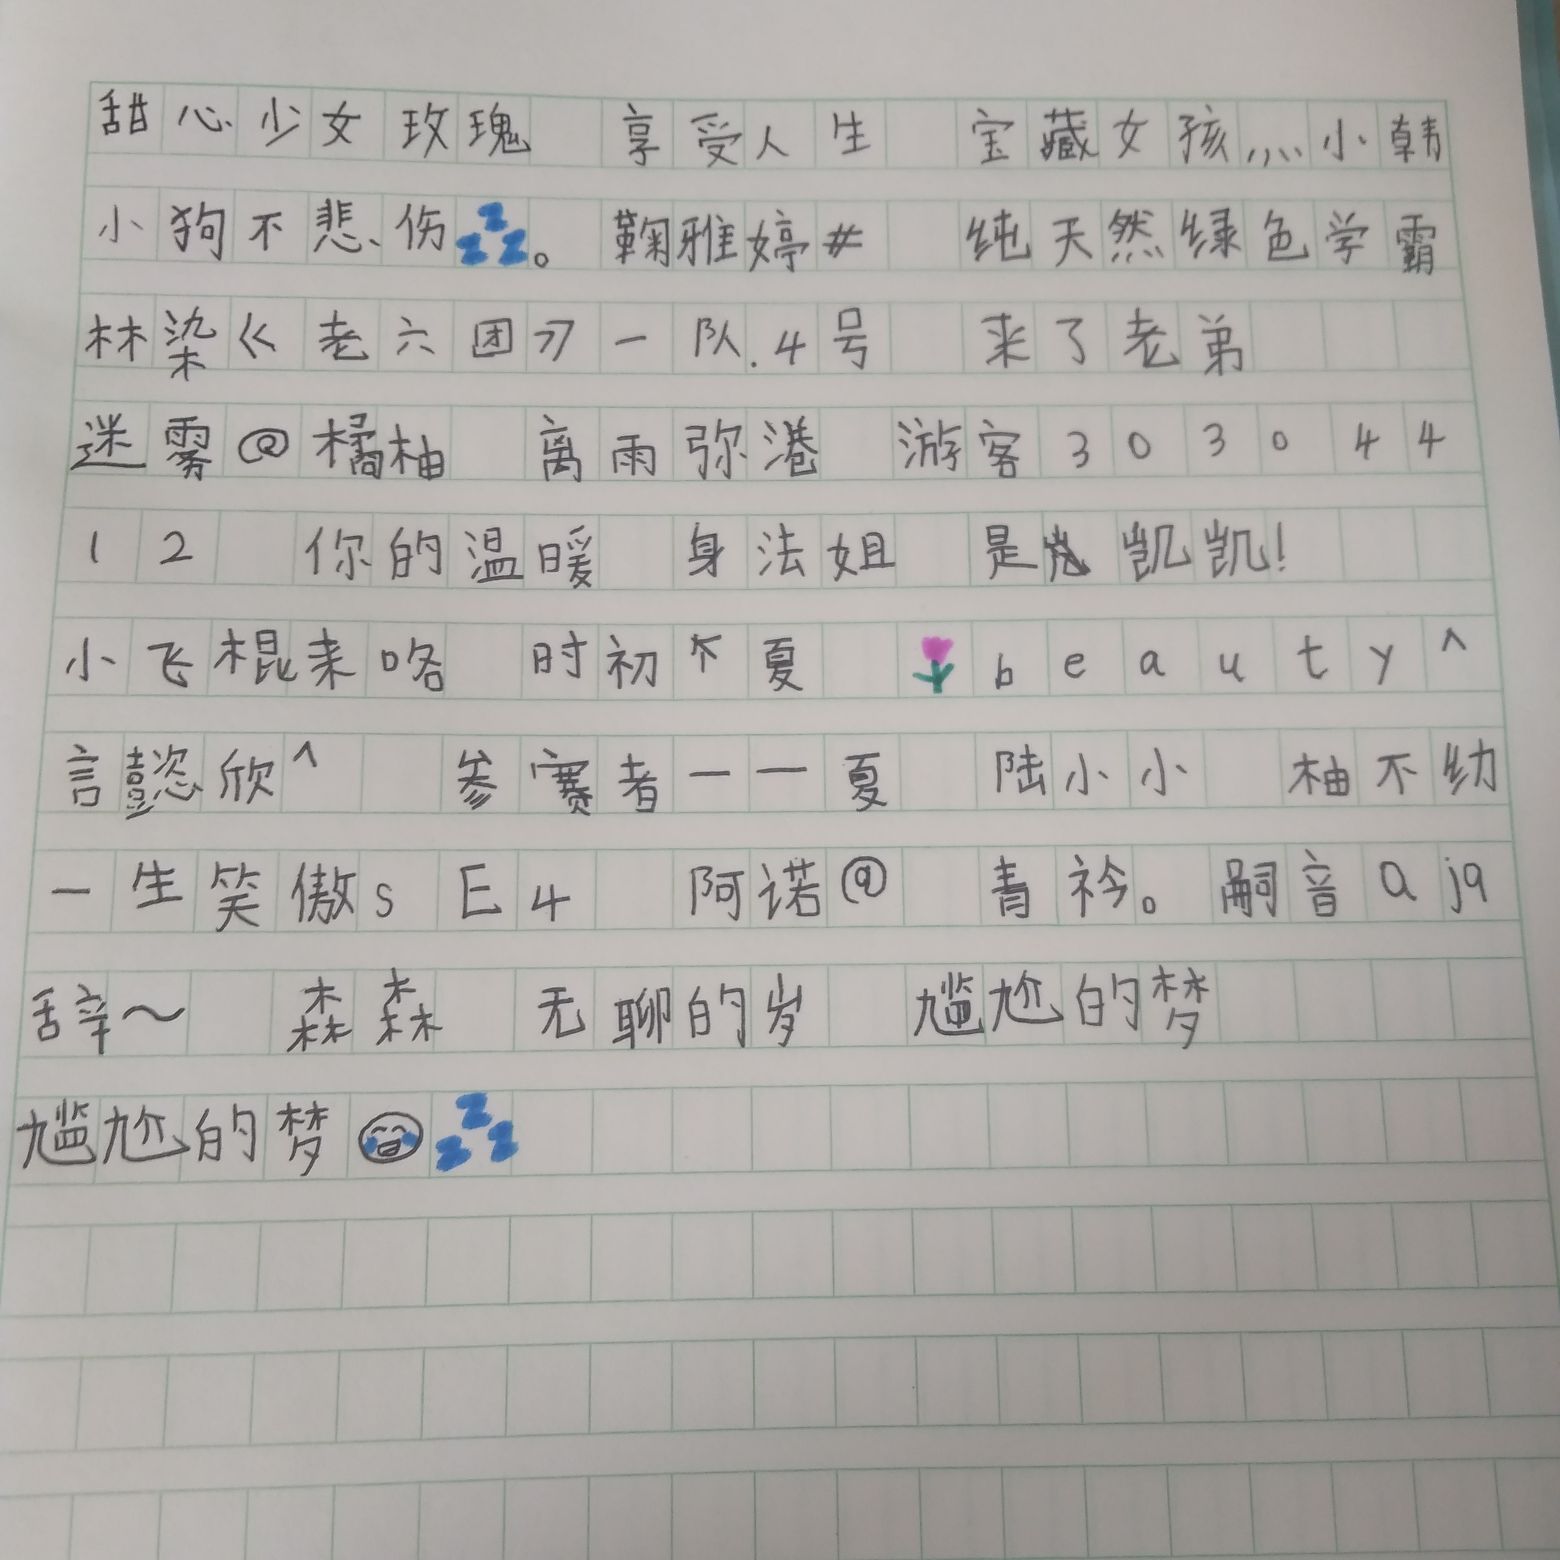 甜心少女玫瑰 享受人生 宝藏女孩灬小韩
小狗不悲伤💤。 鞠雅婷# 纯天然绿色学霸
林染《老六团》一队.4号 来了老弟
迷雾@橘柚 离雨弥港 游客303044
12 你的温暖 身法姐 是 凯凯!
小飞棍来咯 时初 夏 🌷beauty^
言懿欣^ 参赛者一一夏 陆小小 柚不幼
一生笑傲sE4 阿诺@ 青衿。 嗣音aja
辞~ 森森 无聊的岁 尴尬的梦
尴尬的梦😭💤